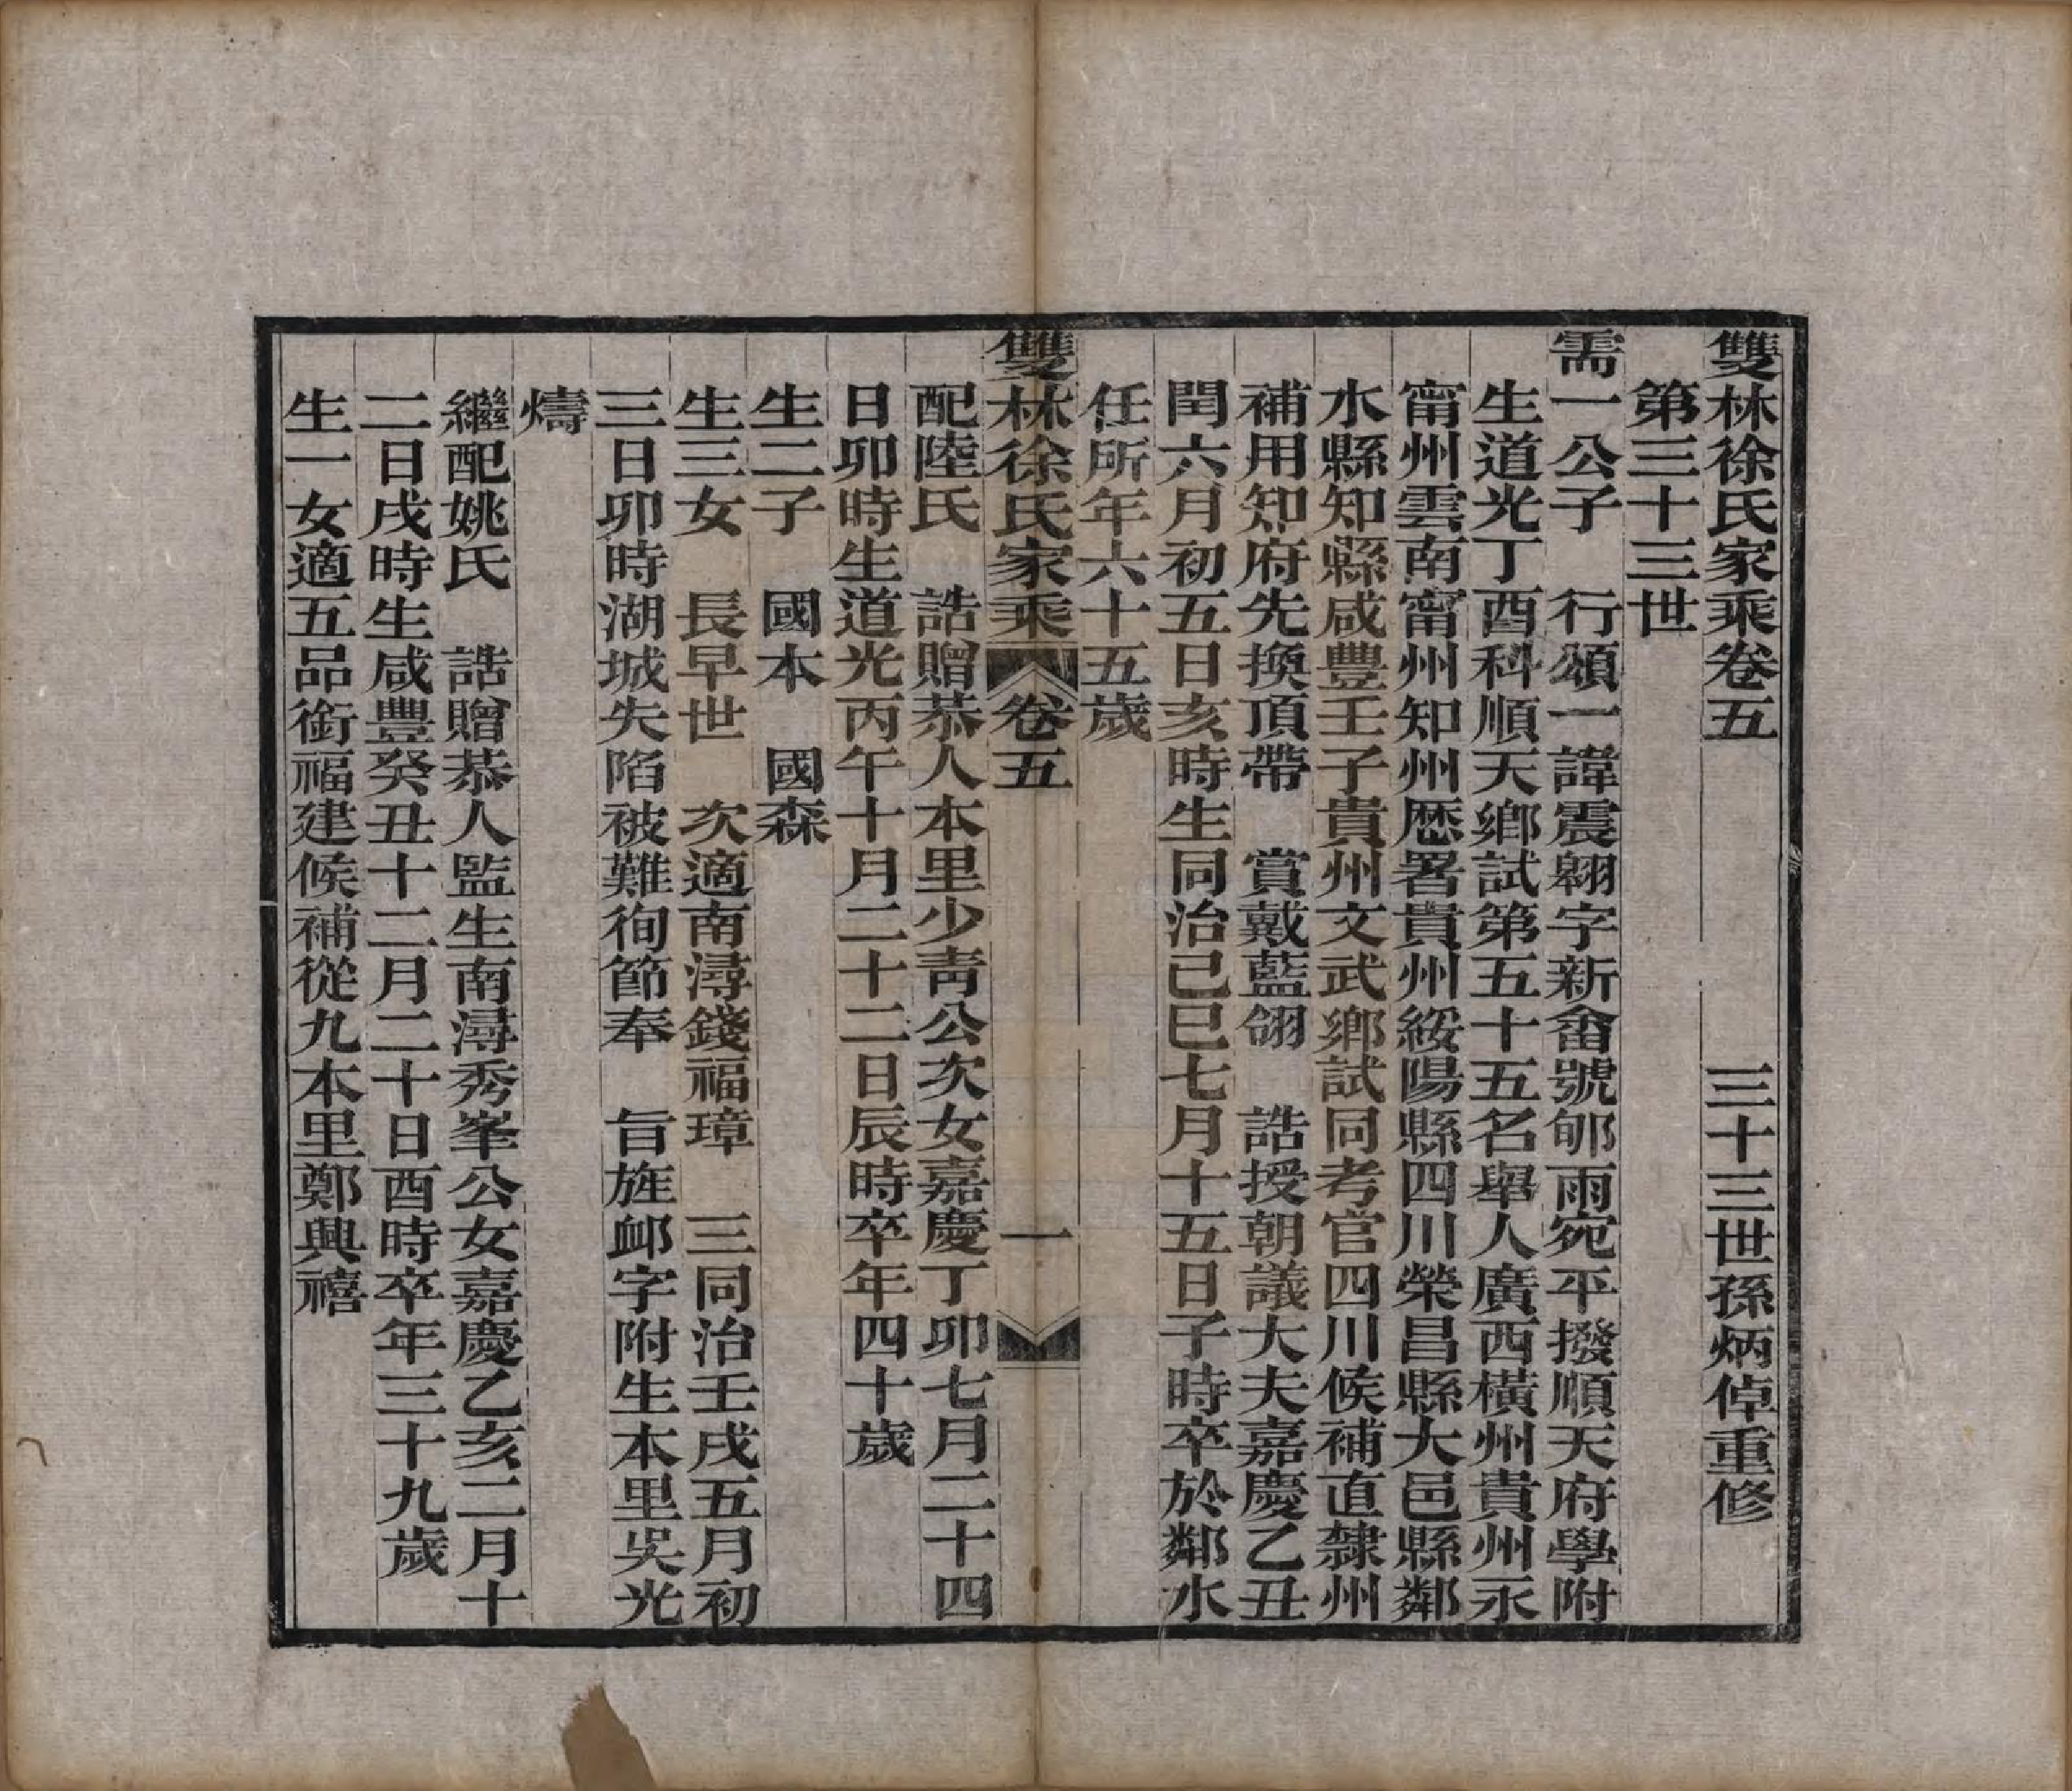 雙林徐氏家乘卷五　三十三世孫炳倬重修
第三十三世
需一公子　行頌一諱震翺字新畬號郇雨宛平撥順天府學附
生道光丁酉科順天鄉試第五十五名舉人廣西橫州貴州永
甯州雲南甯州知州歷署貴州綏陽縣四川榮昌縣大邑縣鄰
水縣知縣咸豐壬子貴州文武鄉試同考官四川候補直隸州
補用知府先換頂帶　賞戴藍翎　誥授朝議大夫嘉慶乙丑
閏六月初五日亥時生同治己巳七月十五日子時卒於鄰水
任所年六十五歲
雙林徐氏家乘　卷五　一
配陸氏　誥贈恭人本里少靑公次女嘉慶丁卯七月二十四
日卯時生道光丙午十月二十二日辰時卒年四十歲
生二子　國本　國森
生三女　長早世　次適南潯錢福璋　三同治壬戌五月初
三日卯時湖城失陷被難徇節奉　旨旌卹字附生本里吳光
燾
繼配姚氏　誥贈恭人監生南潯秀峯公女嘉慶乙亥二月十
二日戌時生咸豐癸丑十二月二十日酉時卒年三十九歲
生一女適五品銜福建候補從九本里鄭興禧